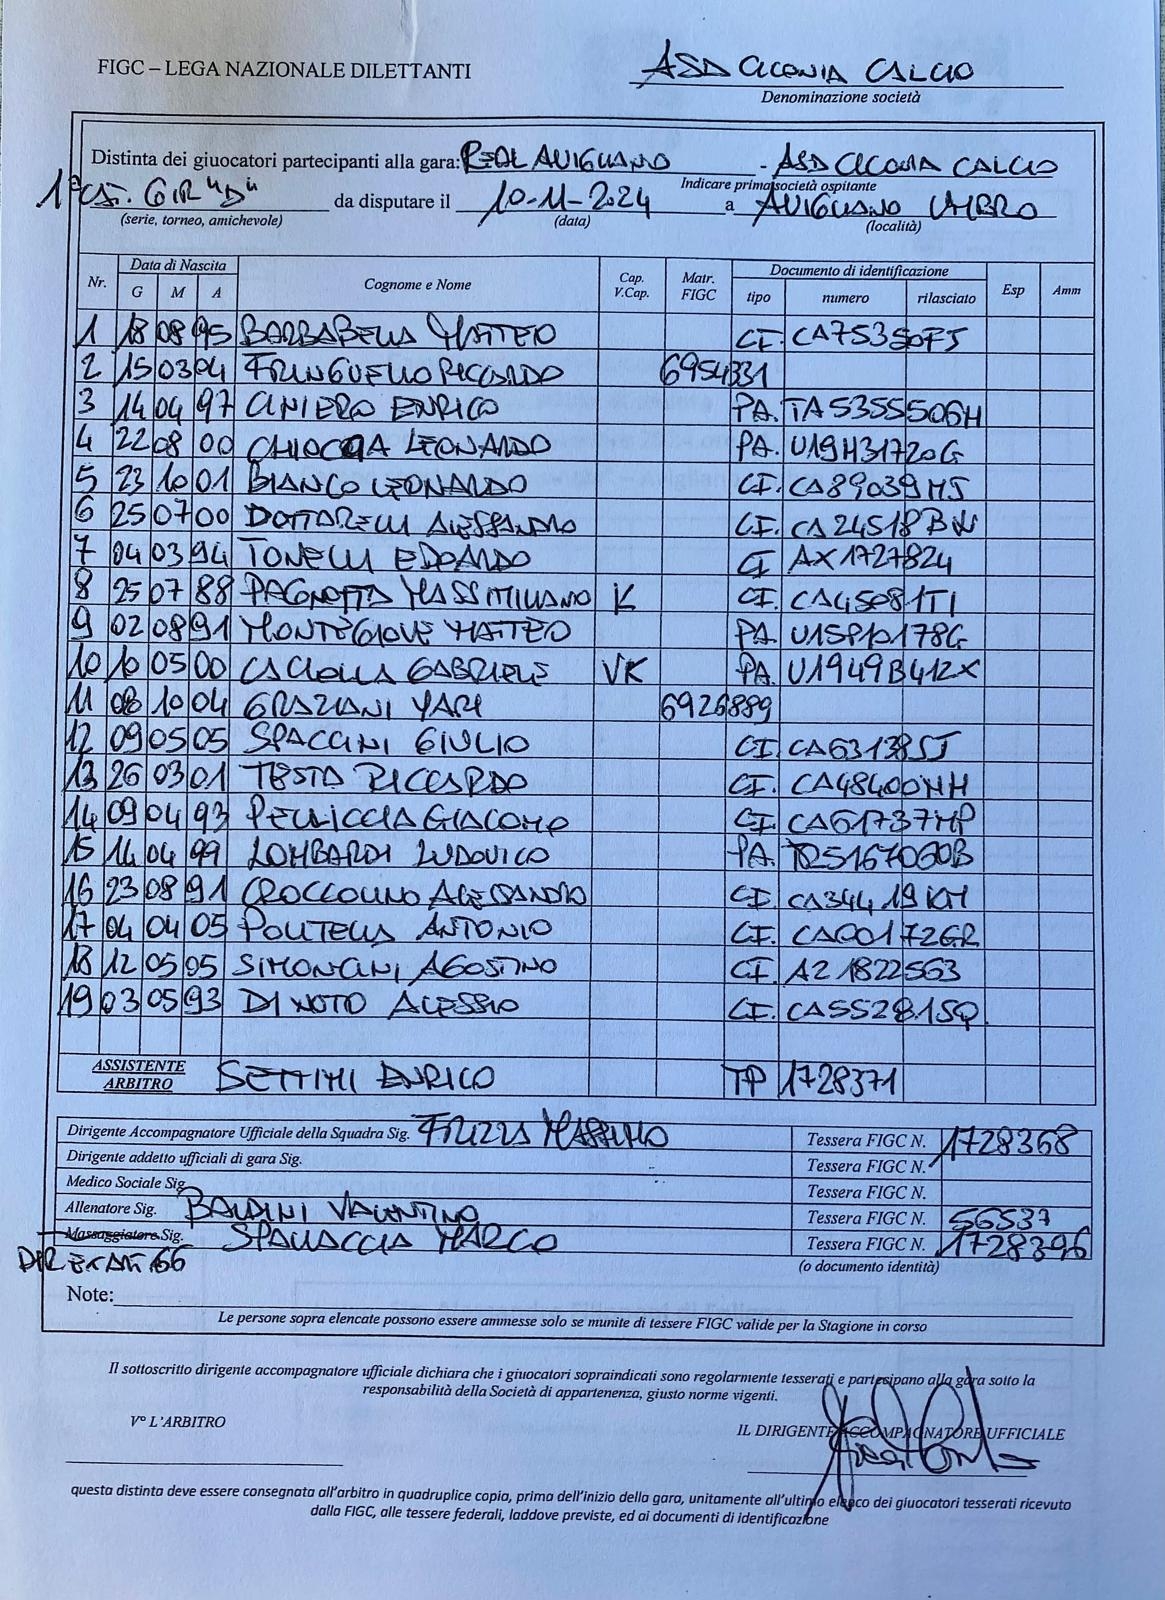 FIGC – LEGA NAZIONALE DILETTANTI ASD CICONIA CALCIO
Denominazione società
Distinta dei giuocatori partecipanti alla gara: REAL AVIGLIANO - ASD CICONIA CALCIO
Indicare prima società ospitante
1ª CAT. GIR "D" da disputare il 10-11-2024 a AVIGLIANO UMBRO
(serie, torneo, amichevole) (data) (località)
Nr. Data di Nascita Cognome e Nome Cap. V.Cap. Matr. FIGC Documento di identificazione Esp Amm
G M A tipo numero rilasciato
1 18 08 95 BARBABELLA MATTEO CI. CA75350FJ
2 15 03 04 FRINGUELLO RICCARDO 6954331
3 14 04 97 CINIERO ENRICO PA. TA5355506H
4 22 08 00 CHIOCCIA LEONARDO PA. U19H31720G
5 23 10 01 BIANCO LEONARDO CI. CA89039MJ
6 25 07 00 DOTTARELLI ALESSANDRO CI. CA24518BW
7 04 03 94 TONELLI EDOARDO CI AX1727824
8 25 07 88 PAGNOTTA MASSIMILIANO K CI. CA45081TI
9 02 08 91 MONTEGIOVE MATTEO PA. U15P10178G
10 10 05 00 CACIOLLA GABRIELE VK PA. U1949B412X
11 08 10 04 GRAZIANI YARI 6926889
12 09 05 05 SPACCINI GIULIO CI. CA63138SJ
13 26 03 01 TESTA RICCARDO CI. CA48400NH
14 09 04 93 PELLICCIA GIACOMO CI. CA61737MP
15 14 04 99 LOMBARDI LUDOVICO PA.
16 23 08 91 CROCCOLINO ALESSANDRO CI. CA34419KM
17 04 04 05 POLITELLA ANTONIO CI. CA00172GR
18 12 05 95 SIMONCINI AGOSTINO CI A21822563
19 03 05 93 DI NOTO ALESSIO CI. CA55281SQ
ASSISTENTE ARBITRO SETTIMI ENRICO TP 1728371
Dirigente Accompagnatore Ufficiale della Squadra Sig. FRIZZA MASSIMO Tessera FIGC N. 1728368
Dirigente addetto ufficiali di gara Sig. Tessera FIGC N.
Medico Sociale Sig. Tessera FIGC N.
Allenatore Sig. BALDINI VALENTINO Tessera FIGC N. 56537
Massaggiatore Sig. SPALLACCIA MARCO Tessera FIGC N. 1728396
(o documento identità)
Note:
Le persone sopra elencate possono essere ammesse solo se munite di tessere FIGC valide per la Stagione in corso
Il sottoscritto dirigente accompagnatore ufficiale dichiara che i giuocatori sopraindicati sono regolarmente tesserati e partecipano alla gara sotto la
responsabilità della Società di appartenenza, giusto norme vigenti.
V° L'ARBITRO
IL DIRIGENTE ACCOMPAGNATORE UFFICIALE
questa distinta deve essere consegnata all'arbitro in quadruplice copia, prima dell'inizio della gara, unitamente all'ultimo elenco dei giuocatori tesserati ricevuto
dalla FIGC, alle tessere federali, laddove previste, ed ai documenti di identificazione